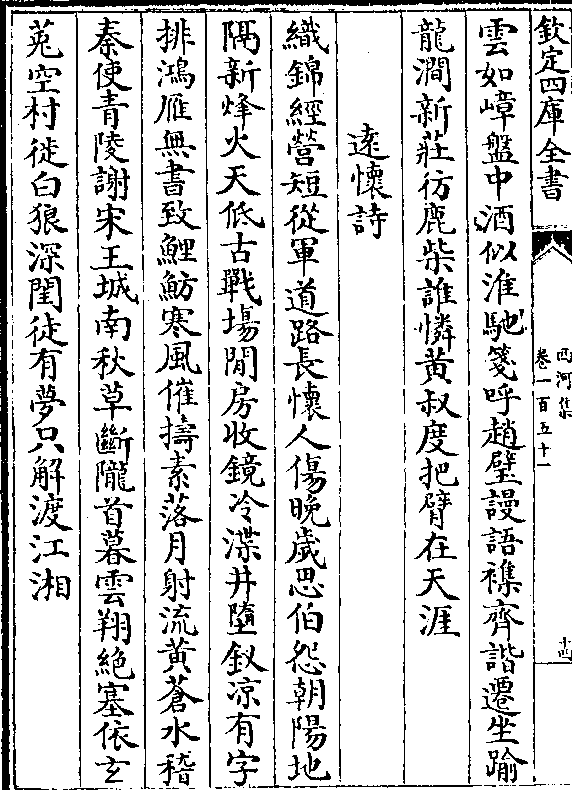 欽定四庫全書
西河集
卷一百五十一
十四
雲如嶂盤中酒似淮馳箋呼趙壁謾語襍齊諧遷坐踰
龍澗新莊彷鹿柴誰憐黃叔度把臂在天涯
遠懷詩
織錦經營短從軍道路長懷人傷晚歲思伯怨朝陽地
隔新烽火天低古戰場閒房收鏡冷渫井墮釵涼有字
排鴻雁無書致鯉魴寒風催擣素落月射流黃蒼水稽
秦使青陵謝宋王城南秋草斷隴首暮雲翔絶塞依玄
菟空村徙白狼深閨徒有夢只解渡江湘